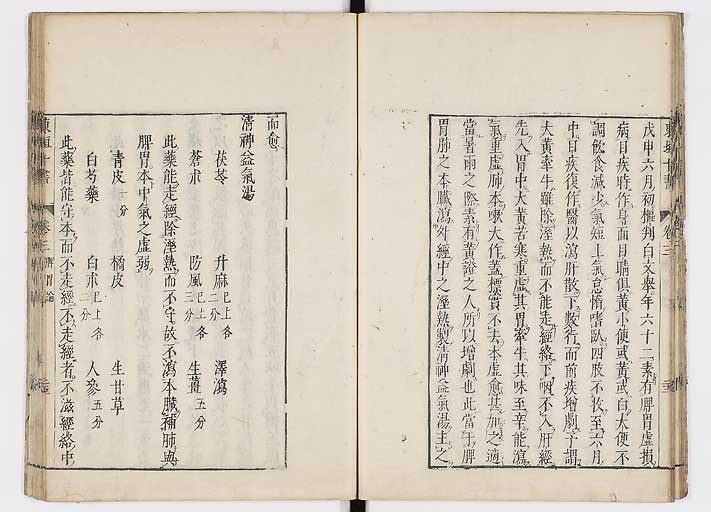 戊申六月初樞判白文舉年六十二素有脾胃虛損
病目疾時作身面目睛俱黃小便或黃或白大便不
調飲食減少氣短上氣怠惰嗜臥四肢不收至六月
中目疾復作醫以瀉肝散下數行而前疾增劇予謂
大黃牽牛雖除溼熱而不能走經絡下咽不入肝經
先入胃中大黃苦寒重虛其胃牽牛其味至辛能瀉
氣重虛肺本嗽大作蓋標實不去本虛愈甚加之適
當暑雨之際素有黃證之人所以增劇也此當于脾
胃肺之本臟瀉外經中之溼熱製清神益氣湯主之
而愈
清神益氣湯
茯苓 升麻已上各二分 澤瀉
蒼朮 防風已上各三分 生薑五分
此藥能走經除溼熱而不守故不瀉本臟補肺與
脾胃本中氣之虛弱
青皮一分 橘皮 生甘草
白芍藥 白朮已上各二分 人參五分
此藥皆能守本而不走經不走經者不滋經絡中
東垣十書 卷三 脾胃論